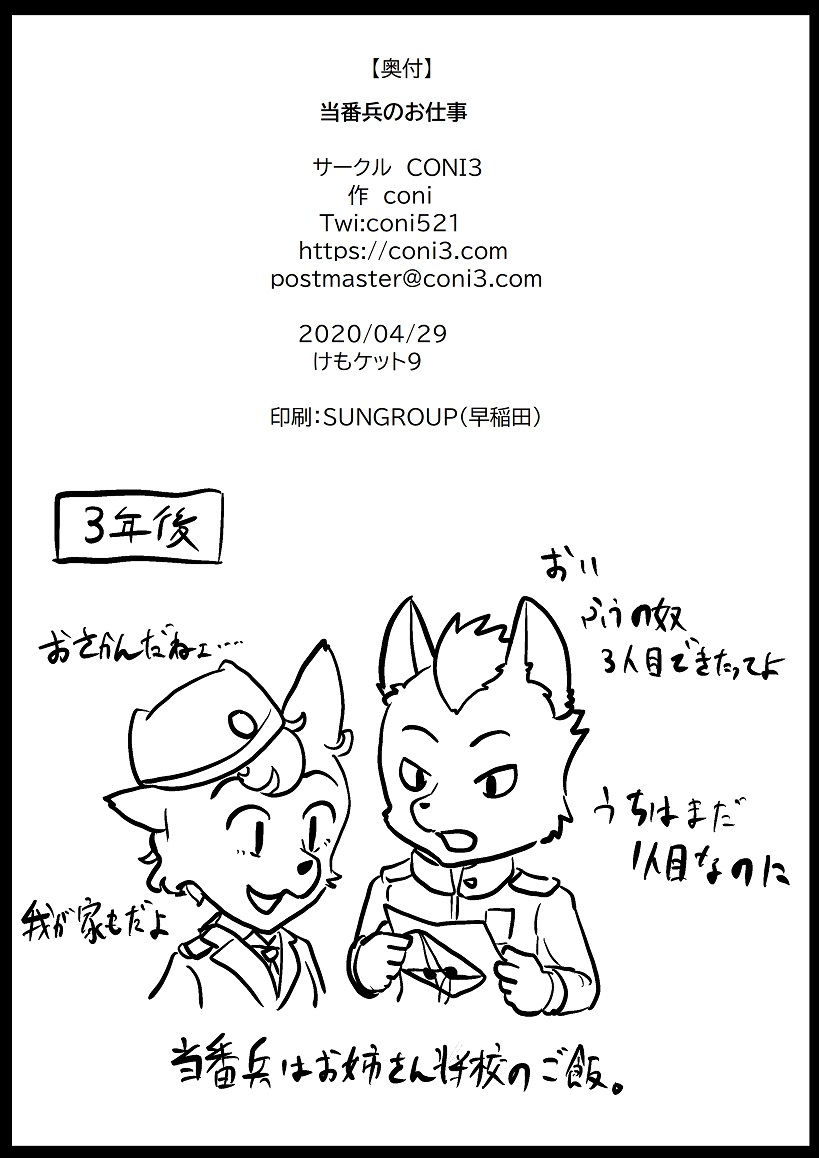 【奥付】
当番兵のお仕事
サークル CONI3
作 coni
Twi:coni521
https://coni3.com
postmaster@coni3.com
2020/04/29
けもケット9
印刷：SUNGROUP（早稲田）
3年後
おい
の奴
3人目できたってよ
おさかんだねェ……
うちはまだ
1人目なのに
我が家もだよ
当番兵はお姉さん将校のご飯。